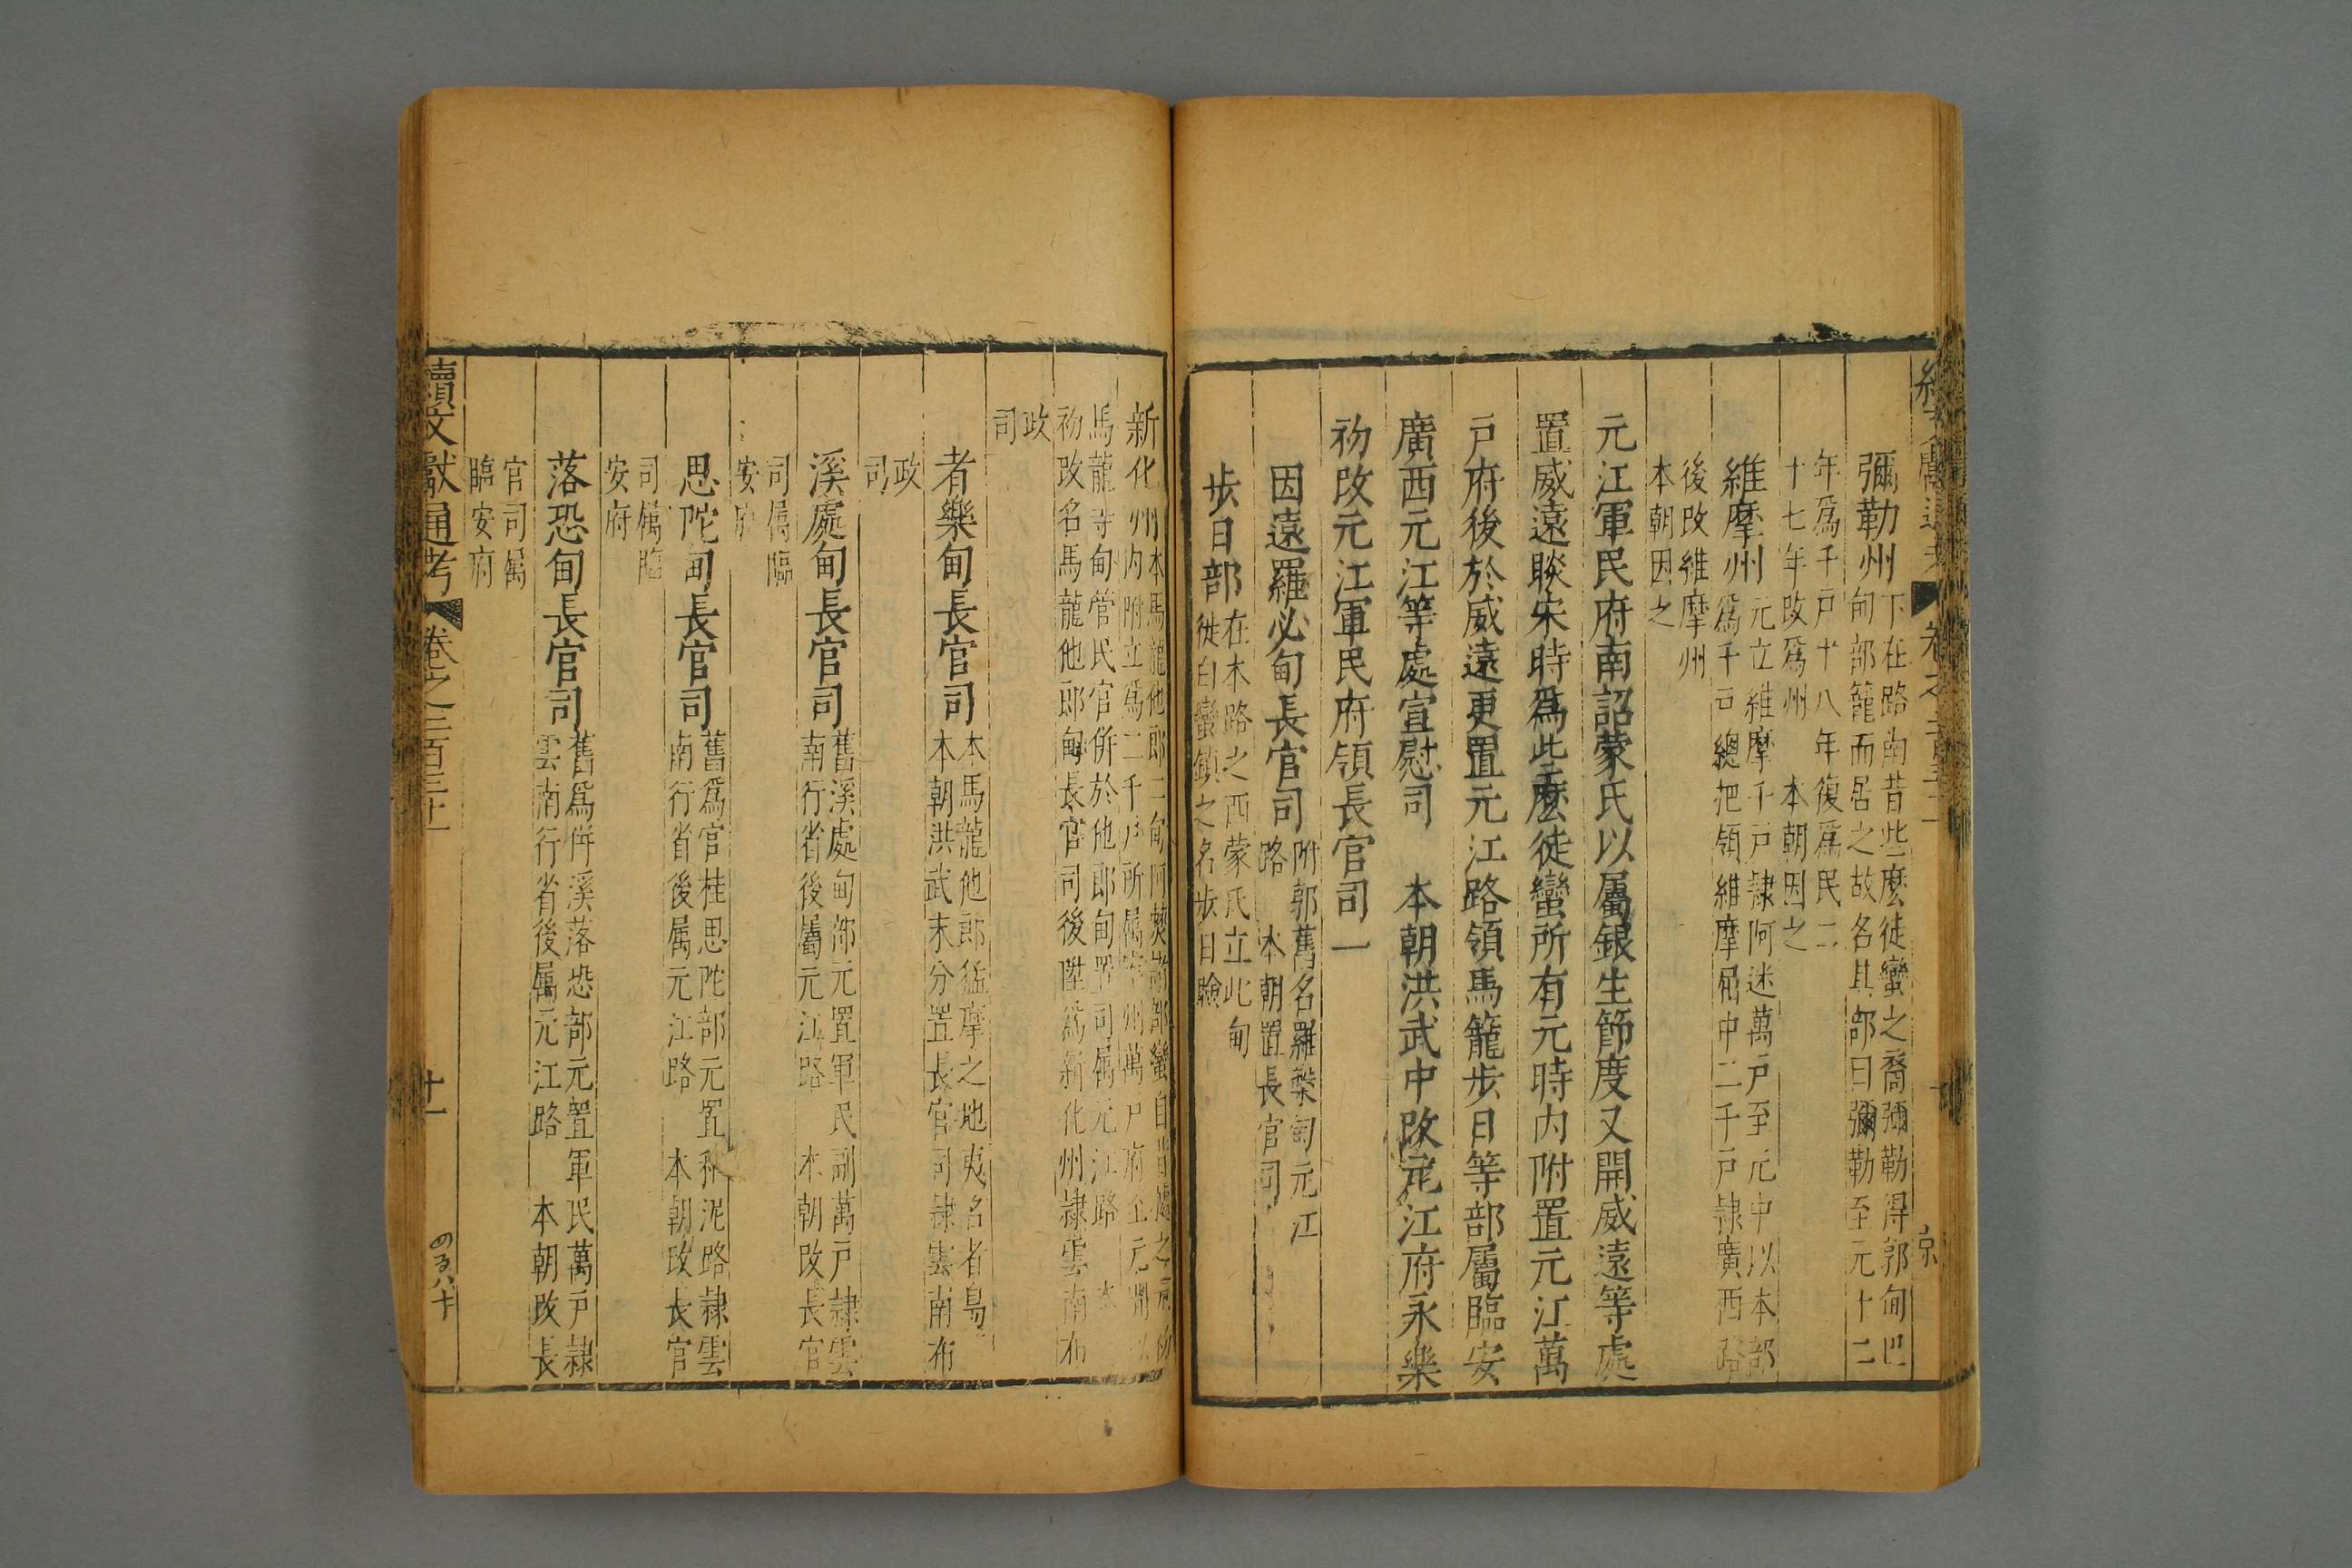 彌勒州
下在路南昔些麽徒蠻之裔彌勒得郭甸巴
甸部籠而居之故名其部曰彌勒至元十二
年爲千戸十八年復爲民二
十七年改爲州　本朝因之
維摩州
元立維摩千戸隷阿迷萬戸至元中以本部
爲千戸總把領維摩屈中二千戸隷廣西路
後改維摩州
本朝因之
元江軍民府南詔蒙氏以屬銀生節度又開威遠等處
置威遠睒宋時爲些麽徒蠻所有元時内附置元江萬
戸府後於威遠更置元江路領馬籠步日等部屬臨安
廣西元江等處宣慰司　本朝洪武中改元江府永樂
初改元江軍民府領長官司一
因遠羅必甸長官司
附郭舊名羅槃甸元江
路　本朝置長官司
步日部
在本路之西蒙氏立此甸
徙白蠻鎮之名步日瞼
新化州
本馬龍他郎二甸阿僰諸部蠻自昔據之元初
内附立爲二千戸所屬寧州萬戸府至元間以
馬龍等甸管民官併於他郎甸置司属元江路　本
初改名馬龍他郎甸長官司後陞爲新化州隷雲南布
政
司
者樂甸長官司
本馬龍他郎猛摩之地夷名者島
本朝洪武末分置長官司隷雲南布
政
司
溪處甸長官司
舊溪處甸部元置軍民副萬戸隷雲
南行省後屬元江路　本朝改長官
司屬臨
安府
思陀甸長官司
舊爲官桂思陀部元置和泥路隷雲
南行省後属元江路　本朝改長官
司属臨
安府
落恐甸長官司
舊爲伴溪落恐部元置軍民萬戸隷
雲南行省後属元江路　本朝改長
官司属
臨安府
續文獻通考　卷之二百三十一
十一